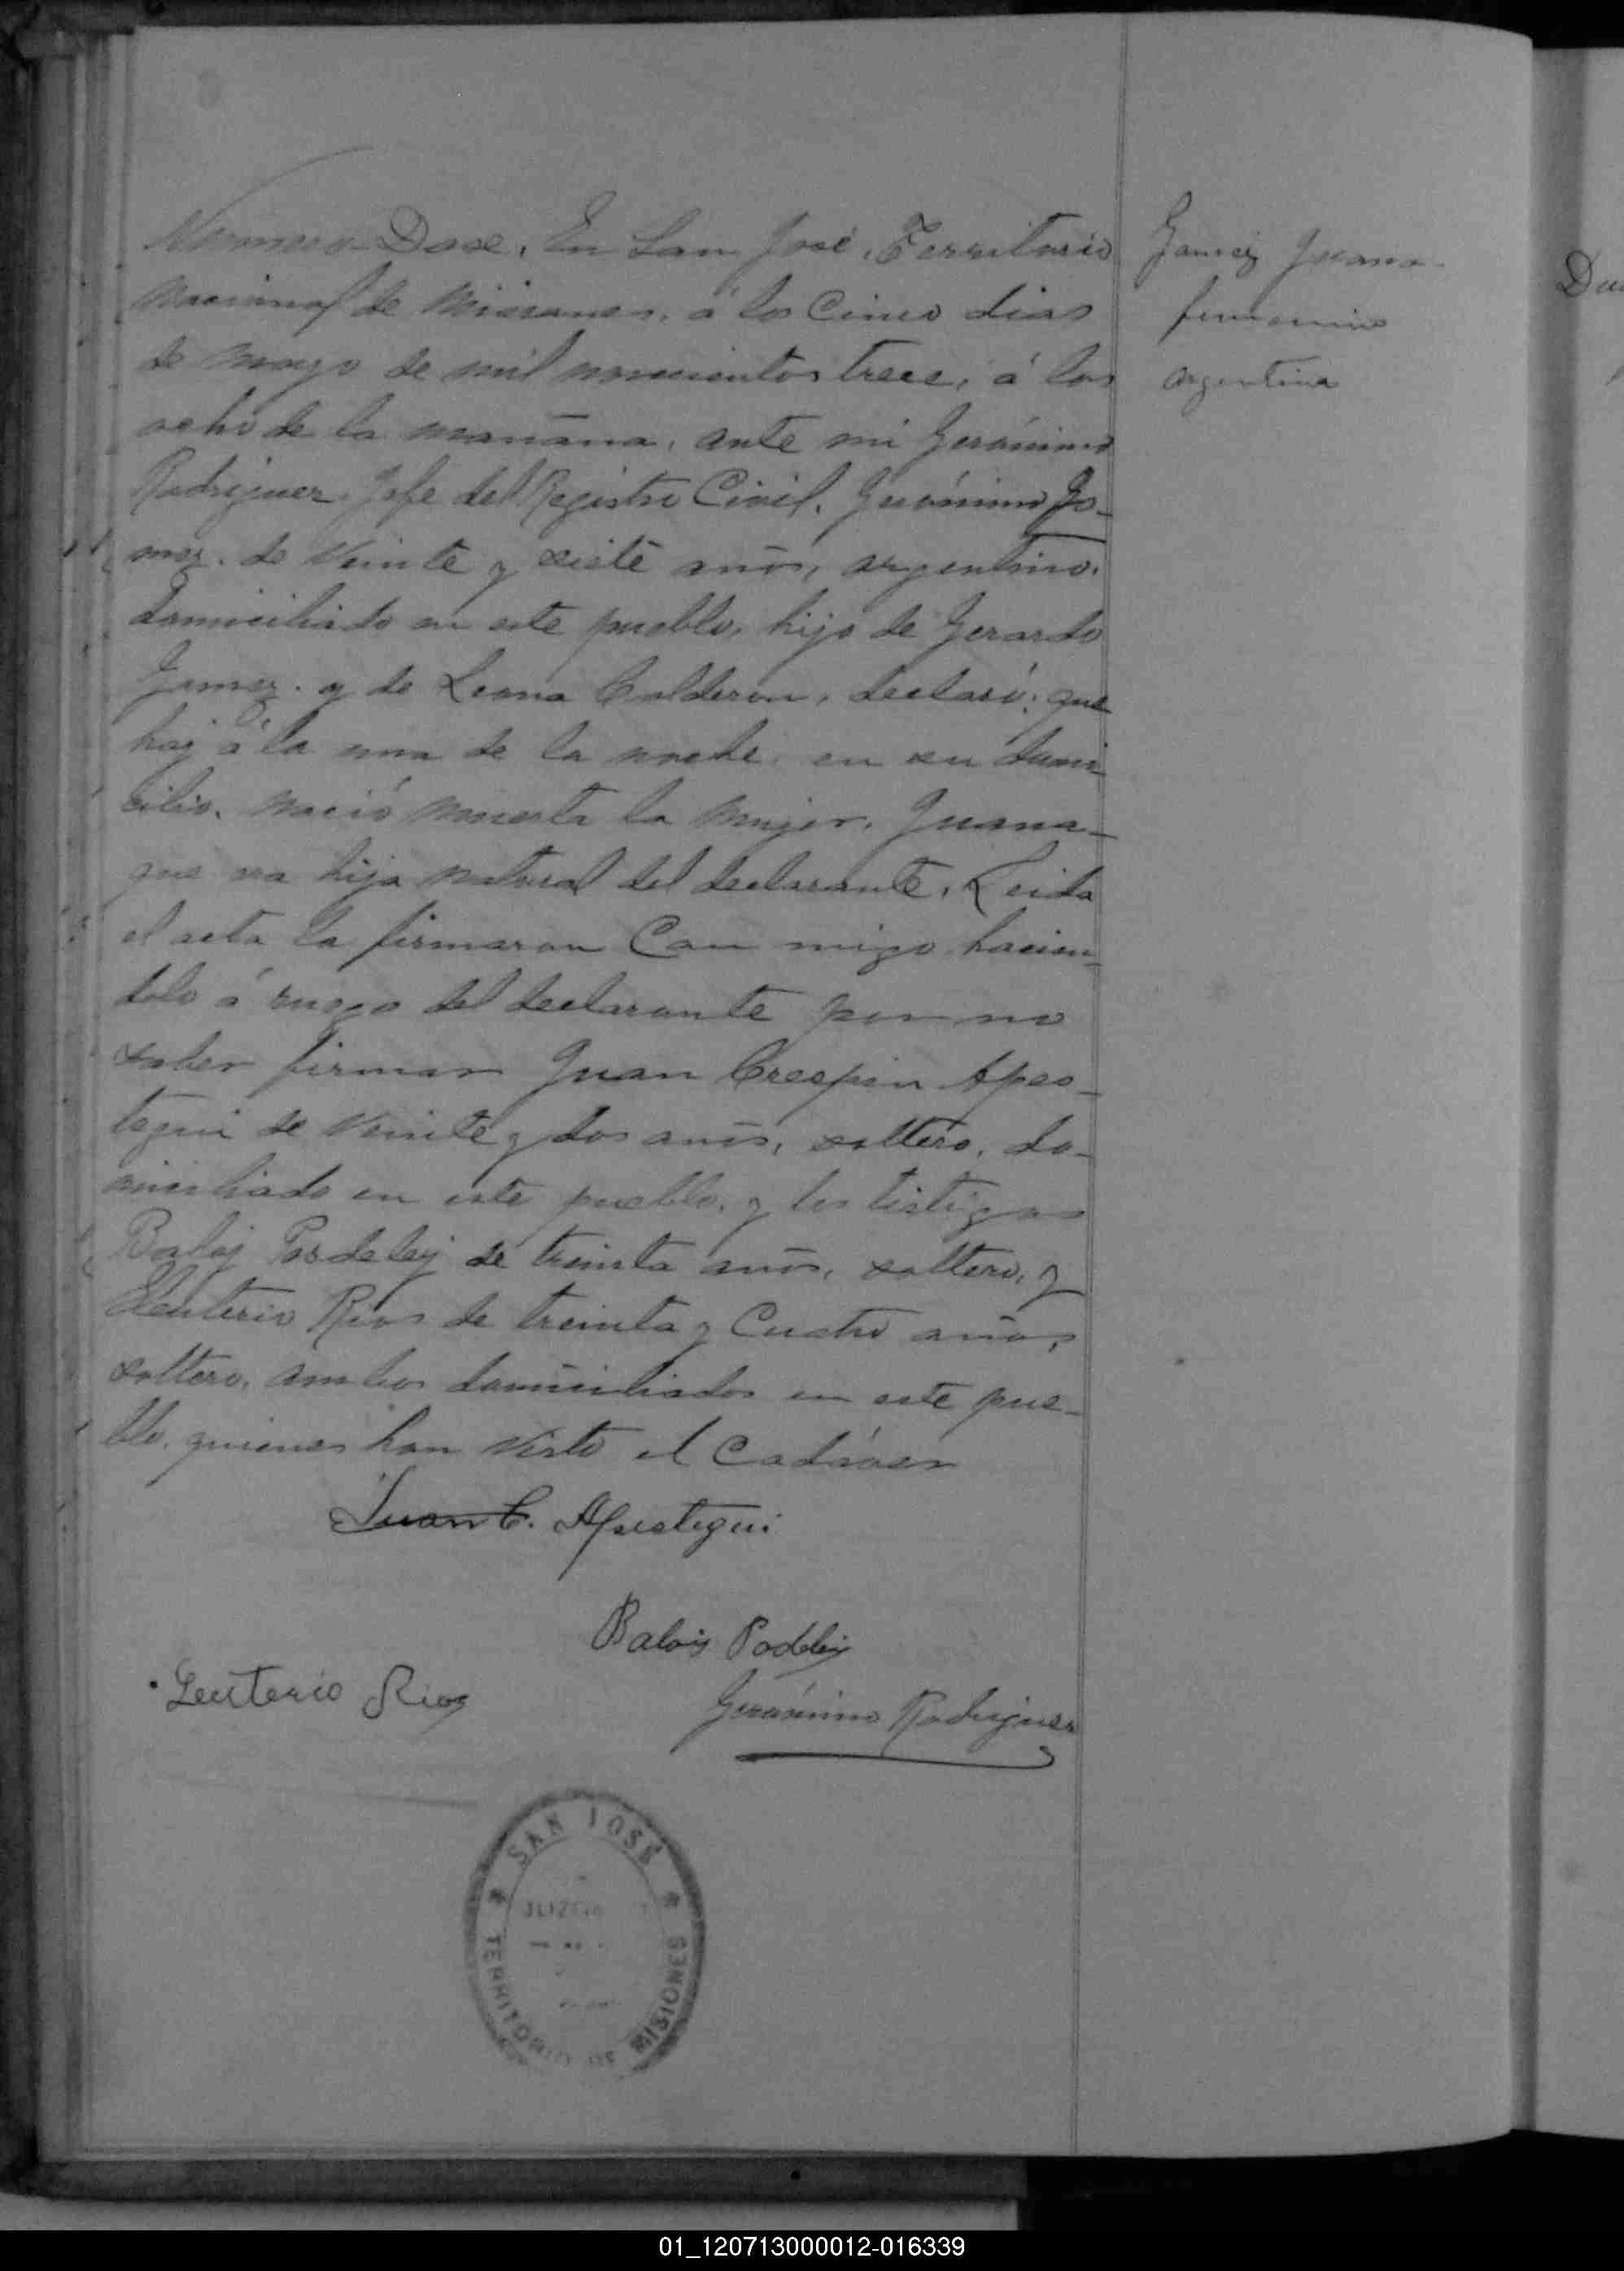 Numero Dose. En San José, Territorio
Nacional de Misiones, á los Cinco dias
de mayo de mil novecientos trece, á las
ocho de la mañana, ante mi Gerónimo
Rodriguez Jefe del Registro Civil, Gerónimo Go-
mez. de Veinte y siete años, argentino.
domiciliado en este pueblo, hijo de Gerardo
Gomez. y de Leona Calderon, declaró: que
hoy á la una de la noche en su domi
cilio. nació muerta la mujer, Juana-
que era hija natural del declarante. Leida
el acta la firmaron Con migo hacien-
dolo á ruego del declarante por no
saber firmar Juan Crespin Apes-
tegui de Veinte y dos años, soltero, do-
miciliado en este pueblo, y los testigos
Baloy de treinta años, soltero, y
Eleuterio Rios de treinta y Cuatro años,
soltero, ambos domiciliados en este pue-
blo, quienes han visto el Cadáver
Juan C. Apestegui
Balois
Leuterio Rios
Gerónimo Rodriguez
SAN JOSÉ
TERRITORIO DE MISIONES
Gomez Juana
femenino
argentina
01_120713000012-016339